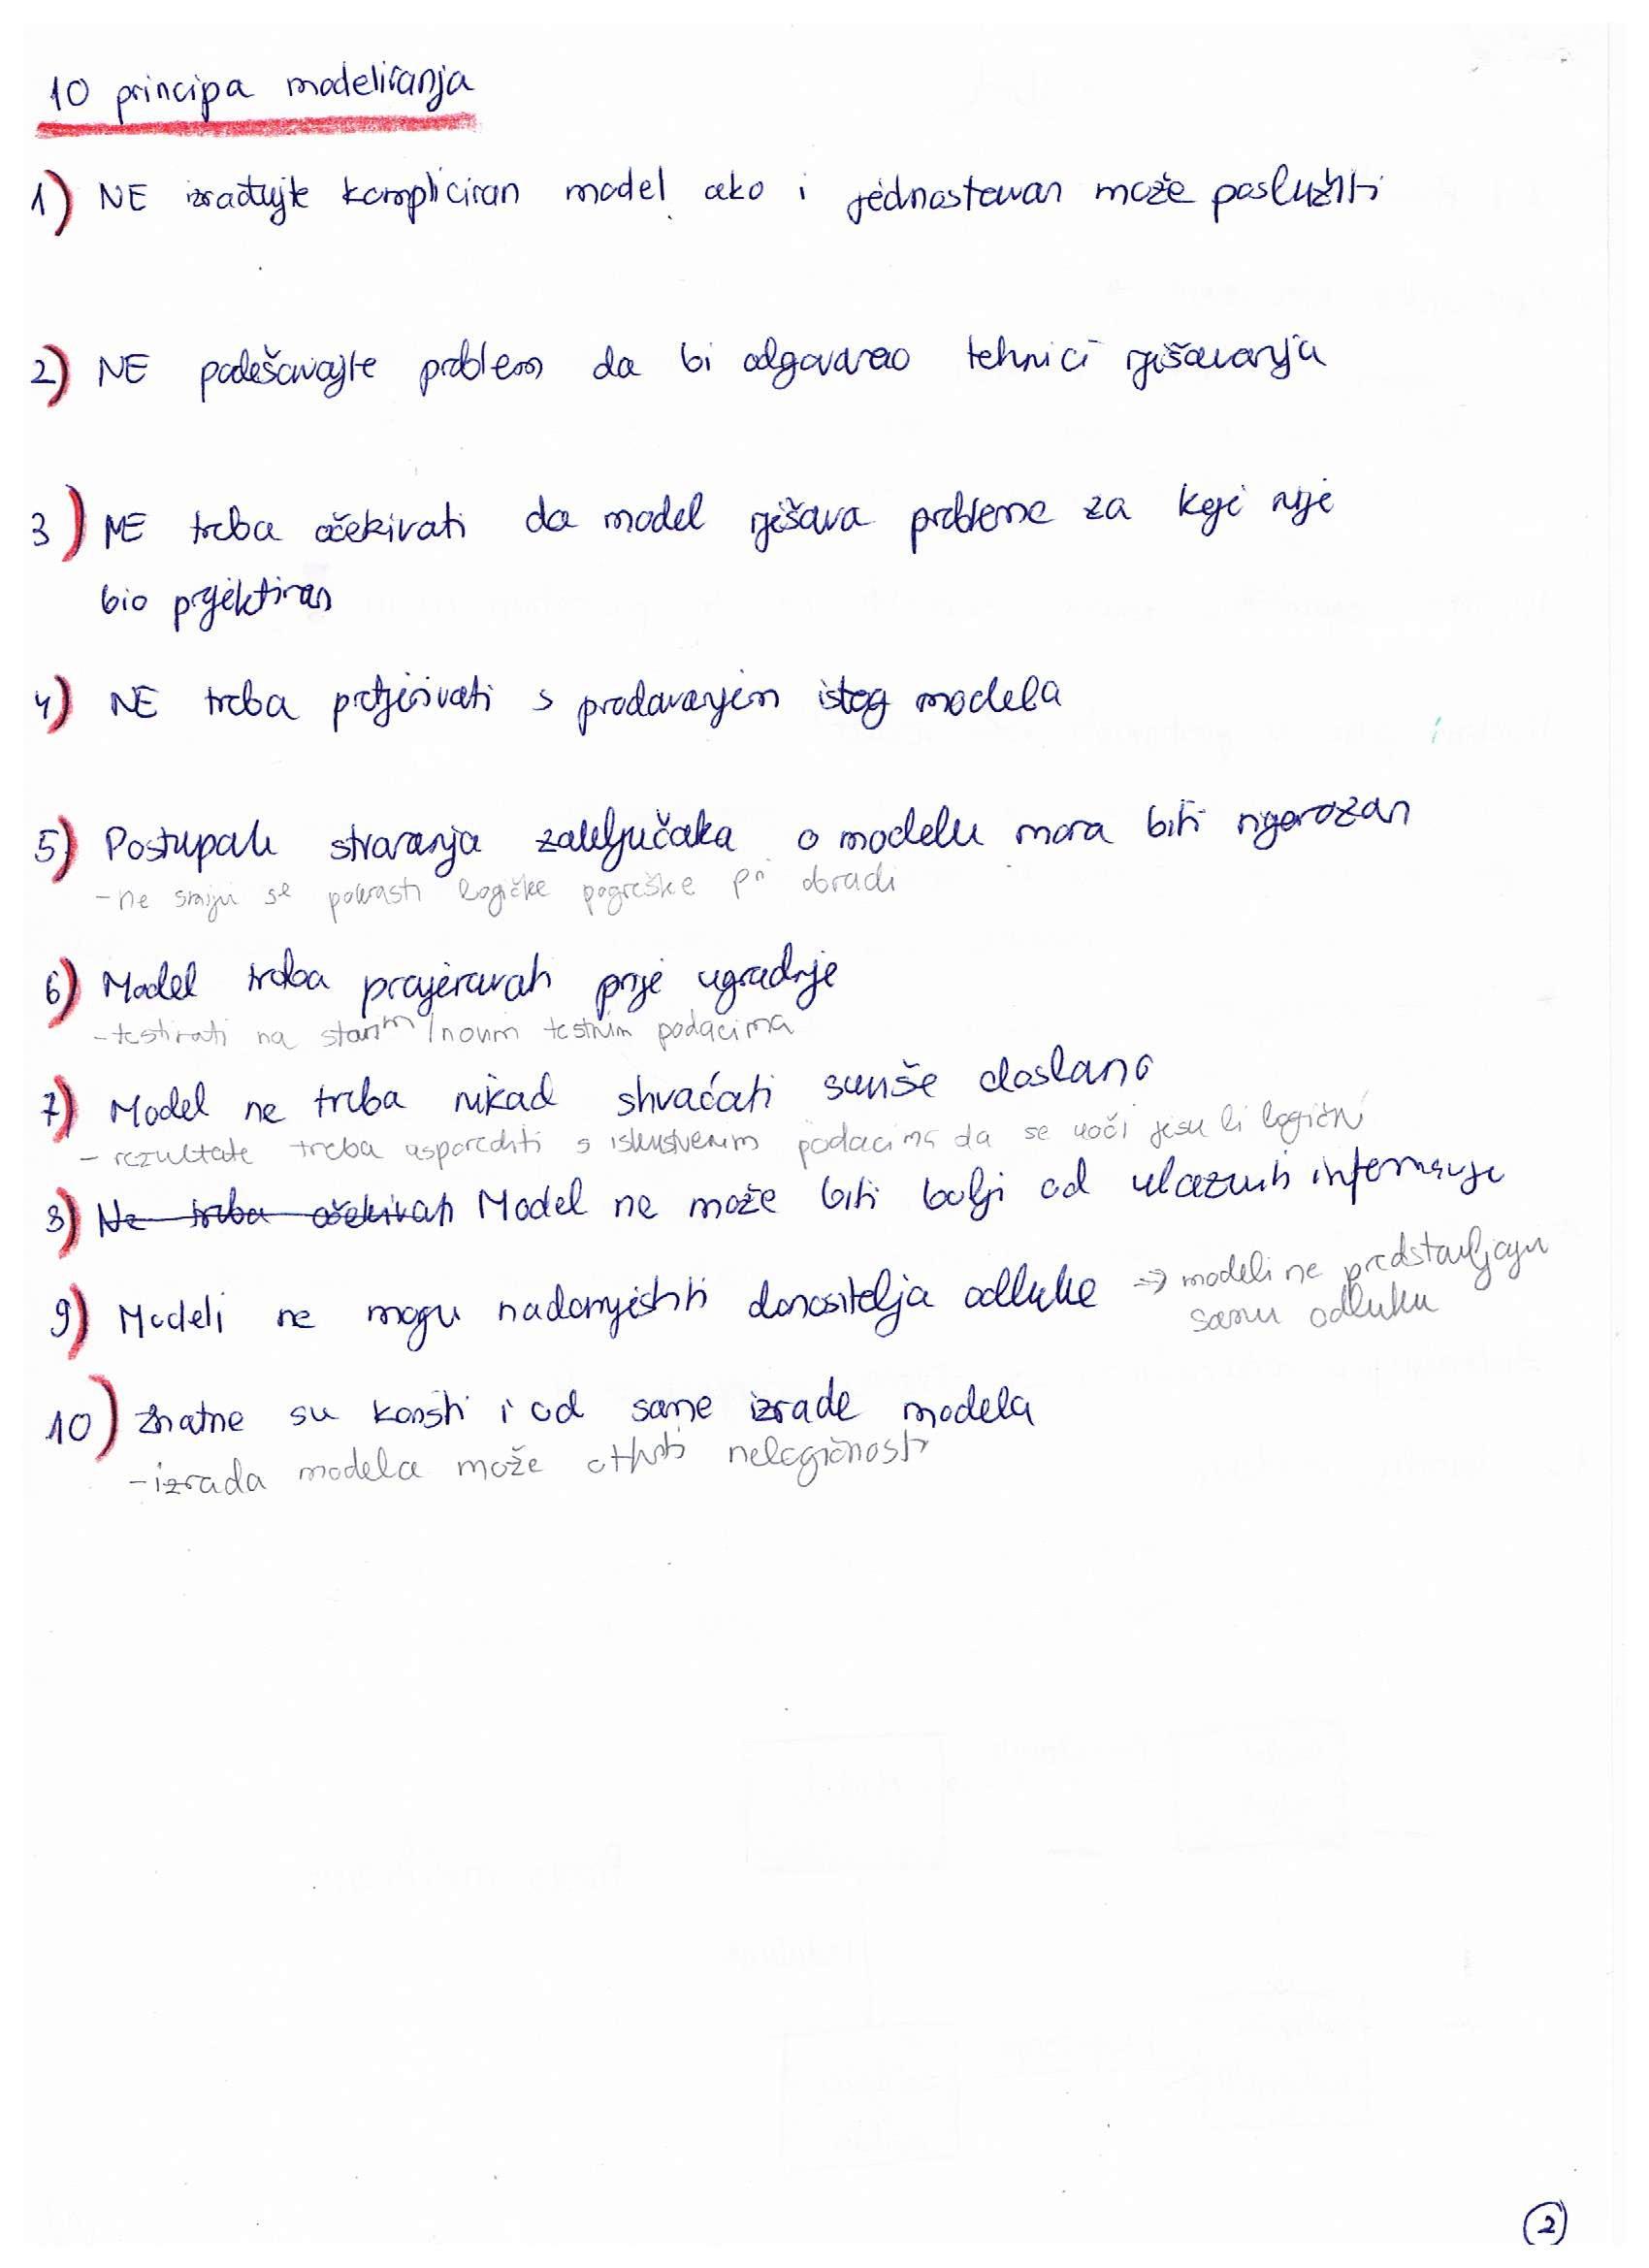 10 principa modeliranja
1) NE izrađujte kompliciran model ako i jednostavan može poslužiti
2) NE podešavajte problem da bi odgovarao tehnici rješavanja
3) NE treba očekivati da model rješava probleme za koje nije
bio projektiran
4) NE treba pretjerivati s prodavanjem istog modela
5) Postupak stvaranja zaključaka o modelu mora biti rigorozan
- ne smiju se potkrasti logičke pogreške pri obradi
6) Model treba provjeravati prije ugradnje
- testirati na starim / novim testnim podacima
7) Model ne treba nikad shvaćati suviše doslano
- rezultate treba usporediti s iskustvenim podacima da se uoči jesu li logični
8) Ne treba očekivati Model ne može biti bolji od ulaznih informacija
9) Modeli ne mogu nadomjestiti donositelja odluke => modeli ne predstavljaju
samu odluku
10) Znatne su koristi i od same izrade modela
- izrada modela može otkriti nelogičnosti
2